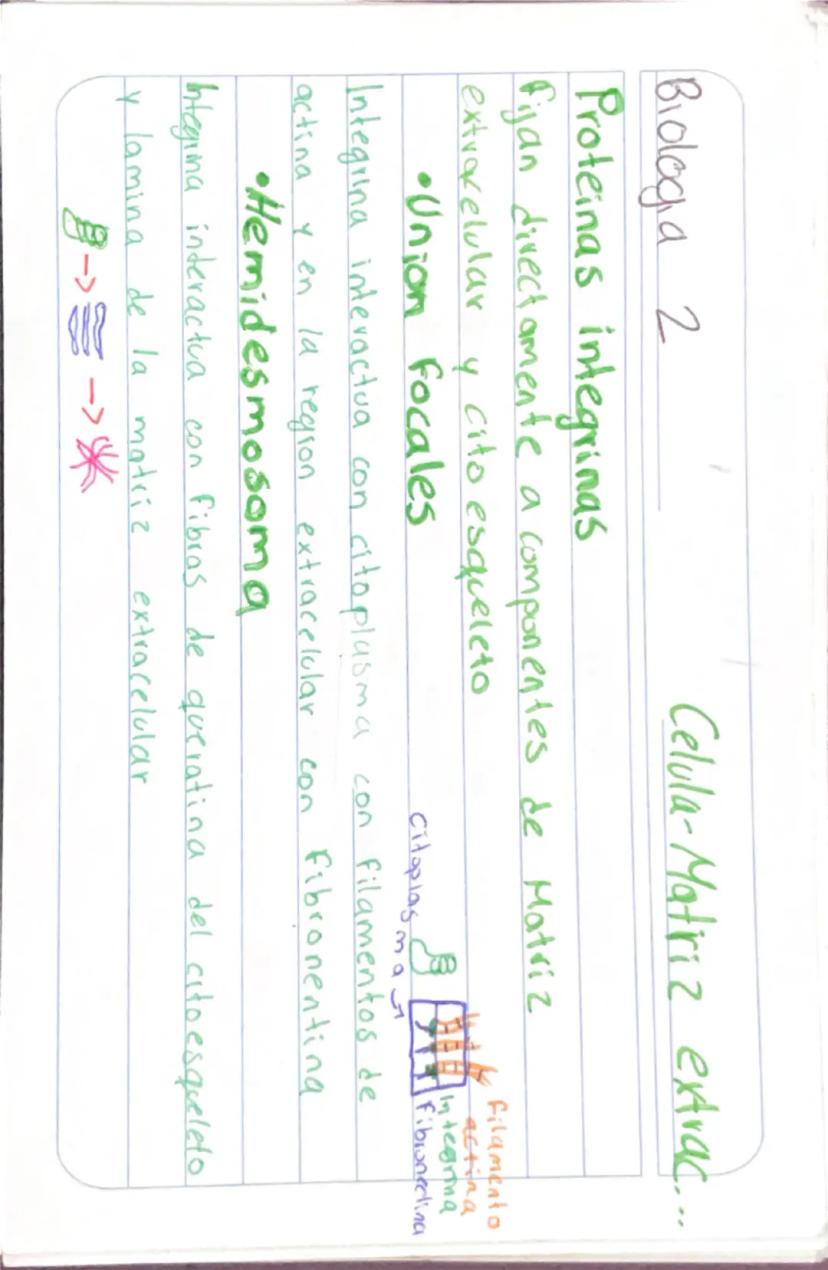 Biologia 2
Celula-Matriz extrac...
Proteinas integrinas
fijan directamente a componentes de Matriz
extracelular y citoesqueleto
•Union focales
Integrina interactua con citoplasma con filamentos de
actina y en la region extracelular con fibronentina
•Hemidesmosoma
Integrina interactua con fibras de queratina del citoesqueleto
y lamina de la matriz extracelular
citoplasma
filamento
actina
Integrina
fibronectina